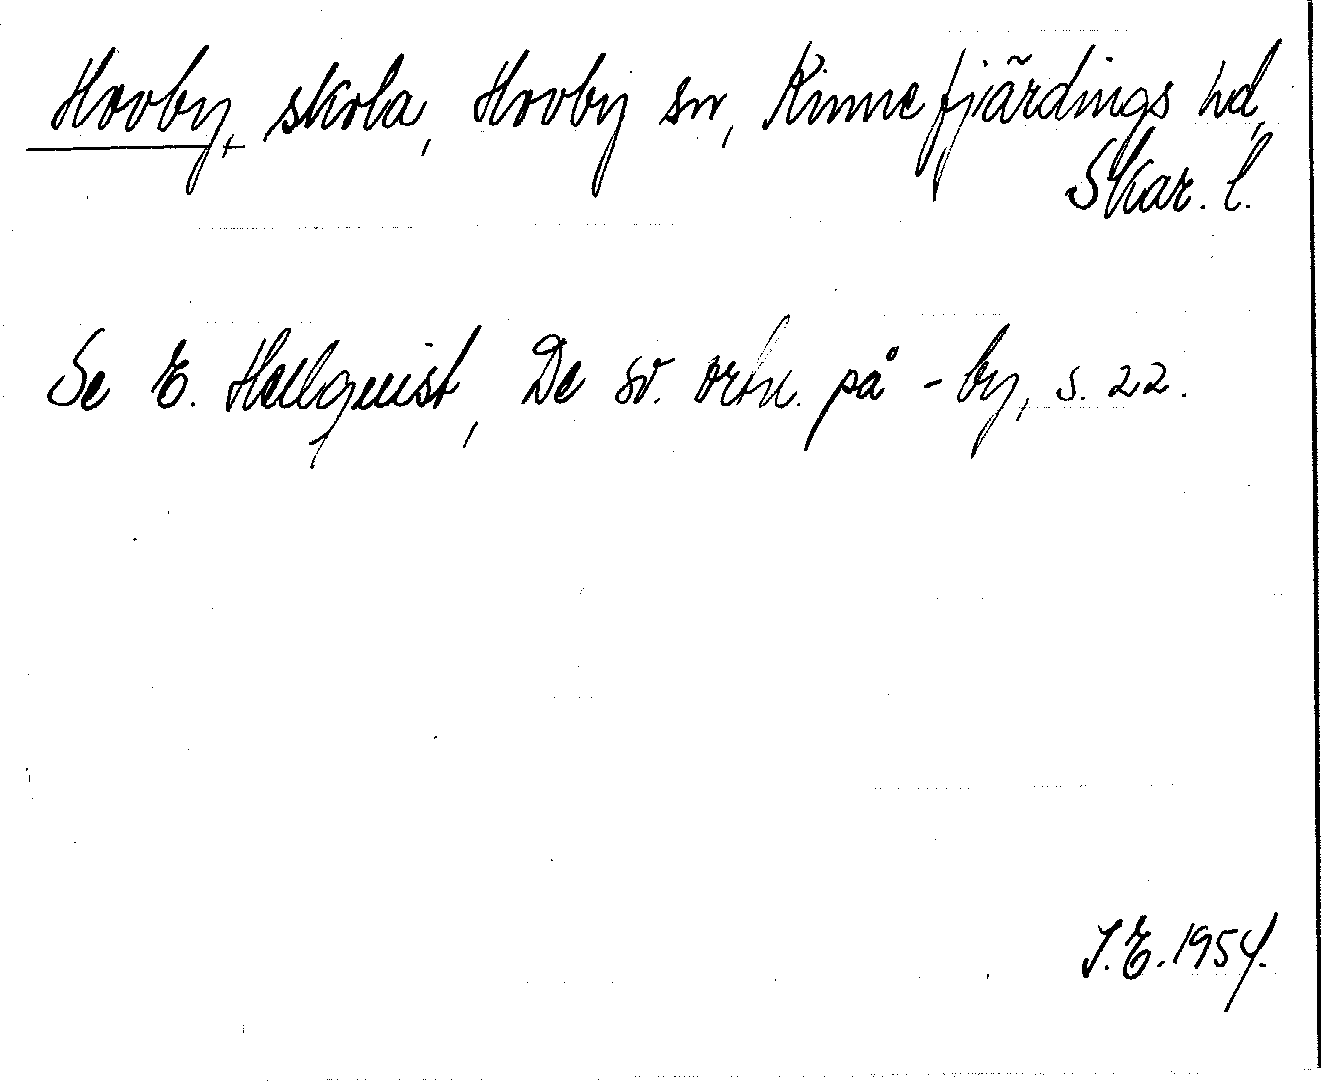 Hovby, skola, Hovby sn, Kinnefjärdings hd,
Skar. l.
Se E. Hellquist, De sv. ortn. på -by, s. 22.
I.E. 1954.